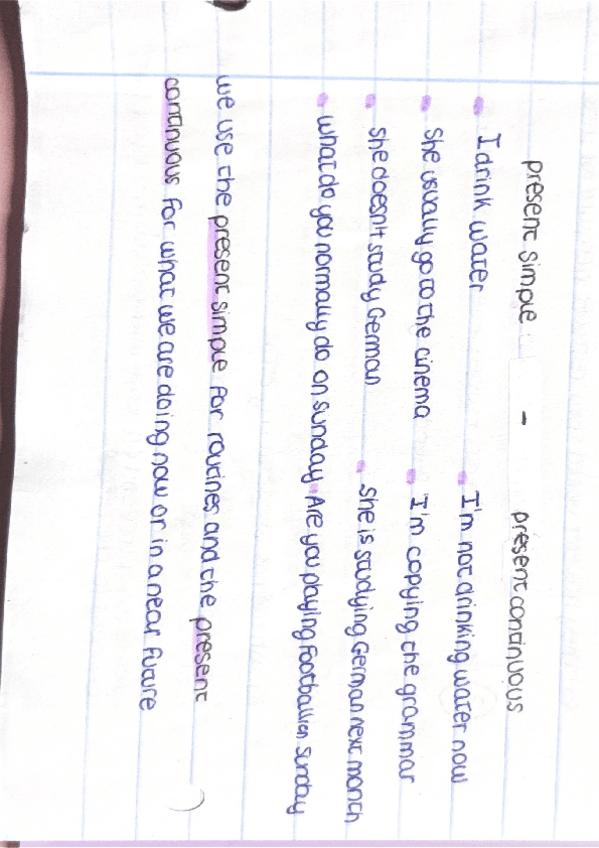 present simple - present continuous
I drink water I'm not drinking water now
She usually go to the cinema I'm copying the grammar
she doesn't study German she is studying German next month
what do you normally do on sunday Are you playing football sunday
we use the present simple for routines and the present
continuous for what we are doing now or in a near future